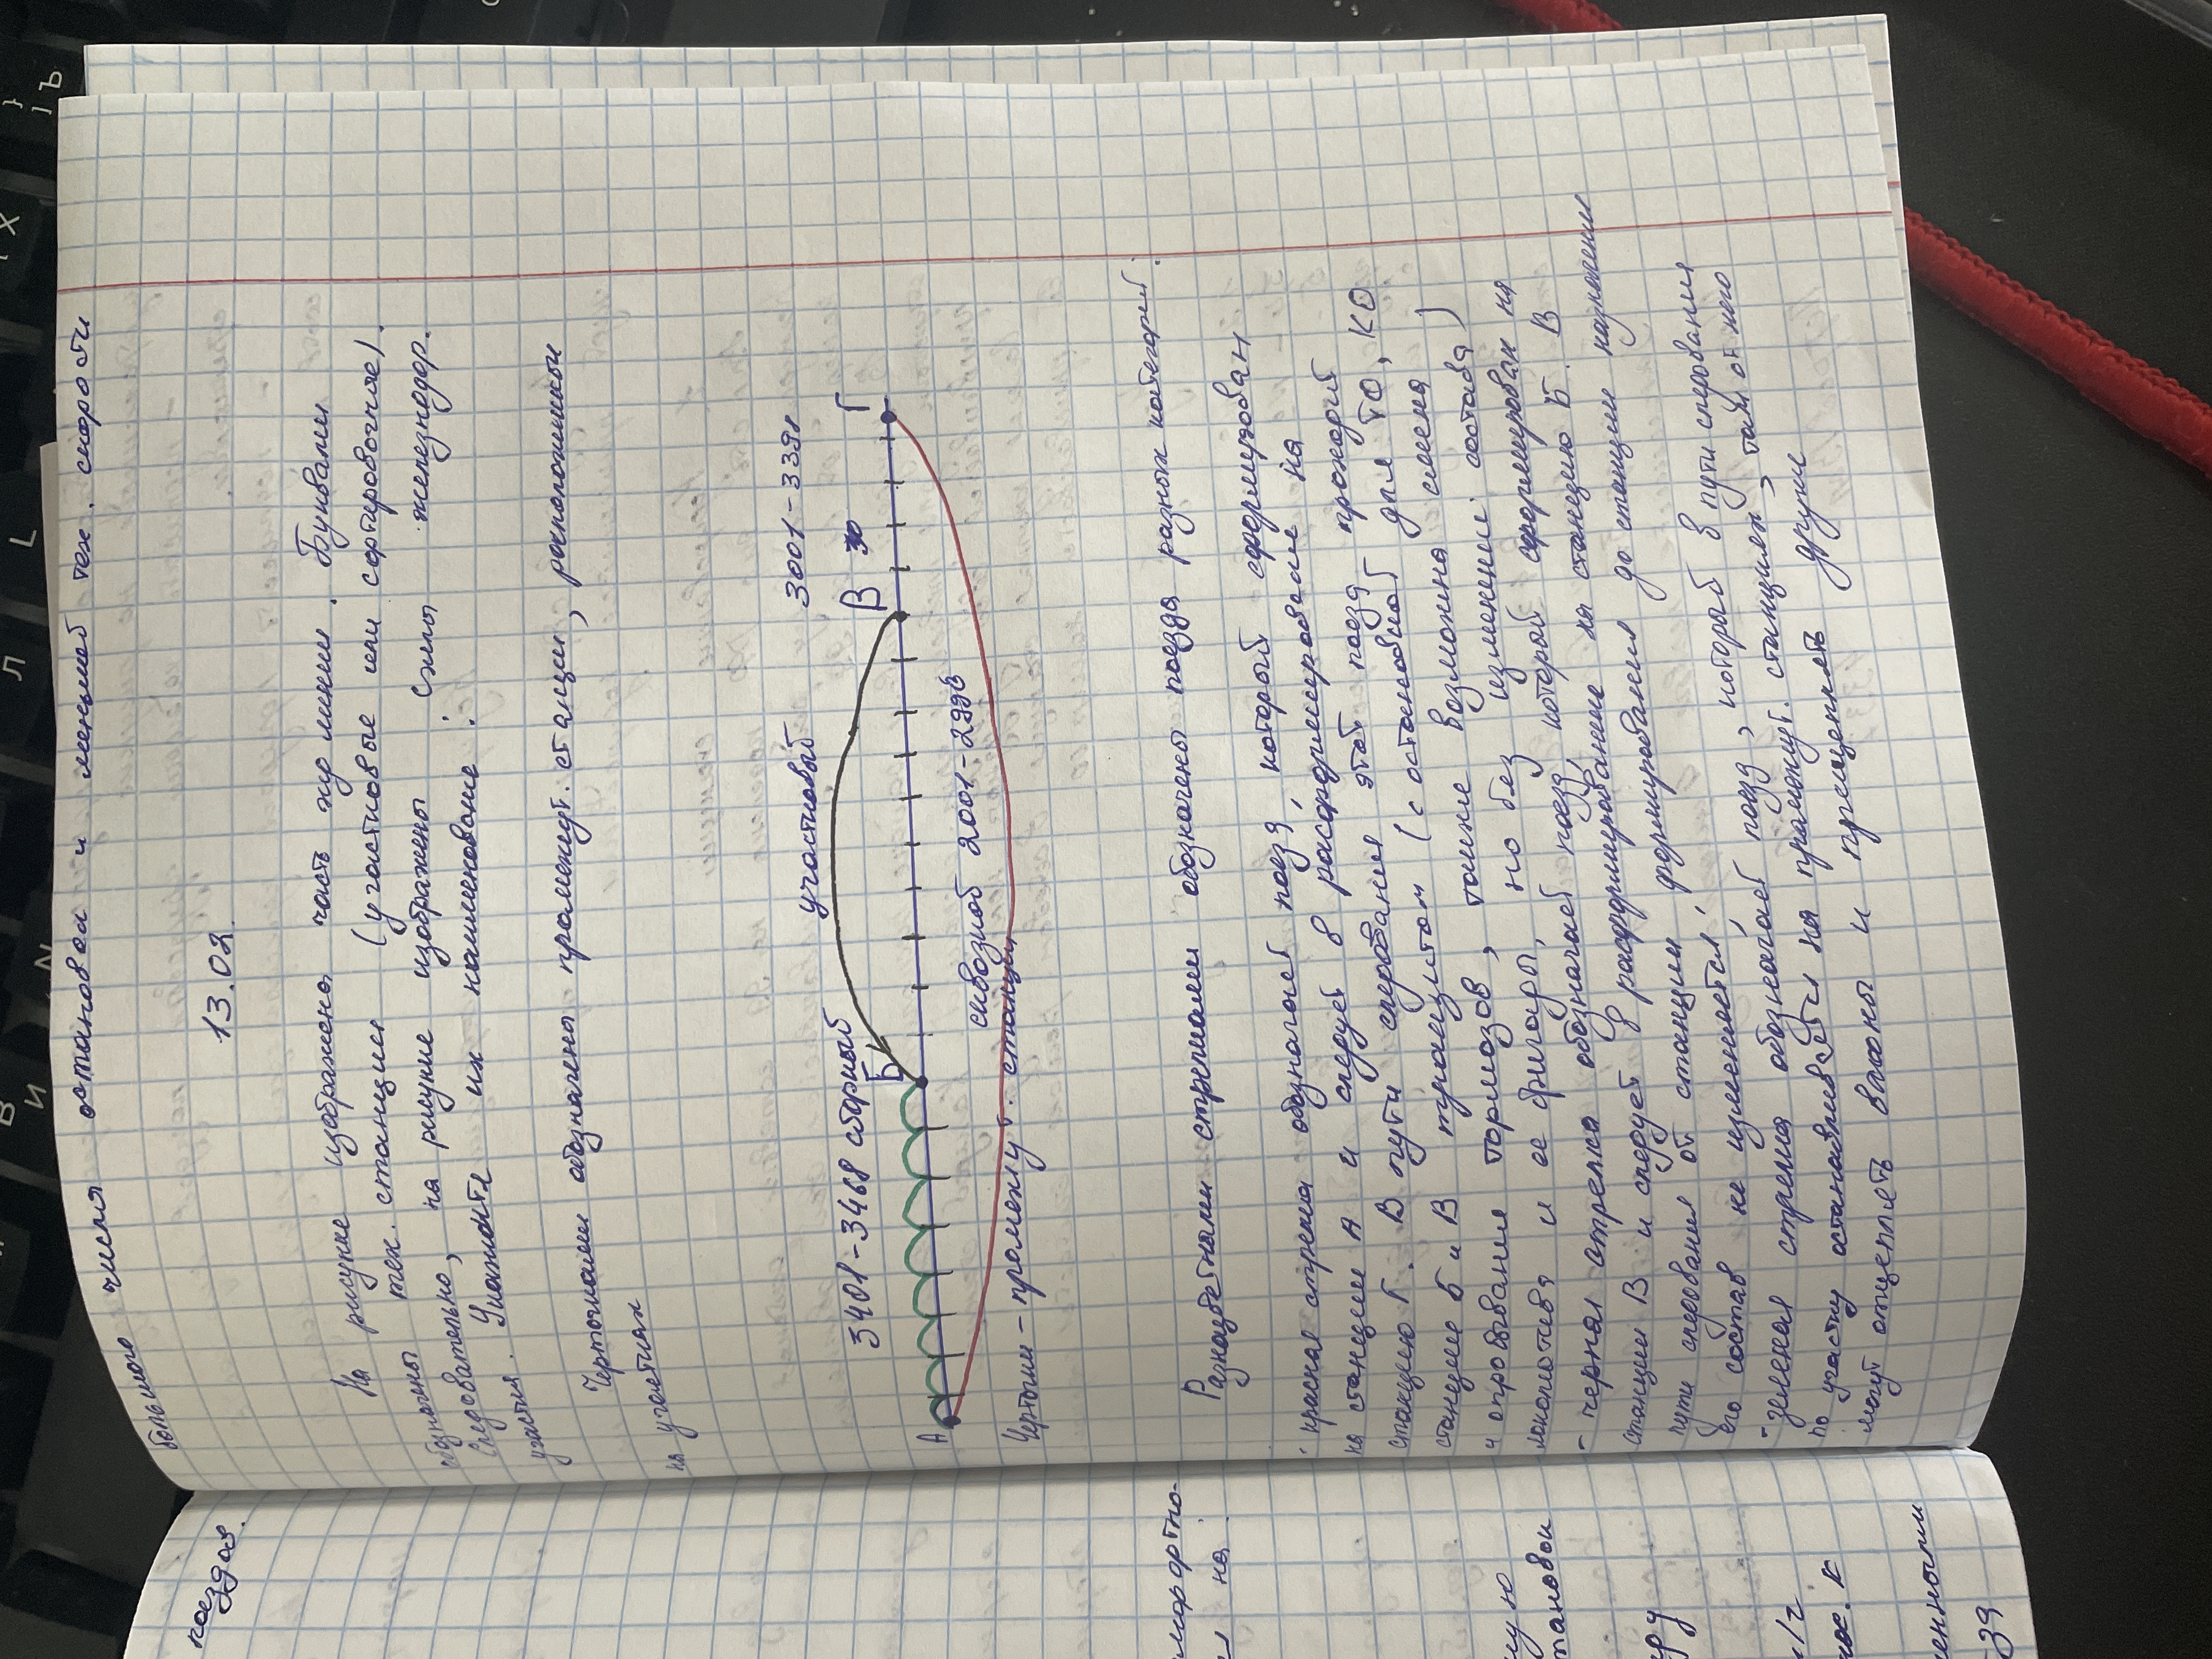 большого числа остановок и меньшей тех. скорости
13.02.
На рисунке изображена часть жд линии. Буквами
обозначены тех. станции (участковые или сортировочные).
Следовательно, на рисунке изображены схемы железнодор.
участка. Укажите их наименование:
Черточками обозначены промежут. станции, расположенные
на участках
3401-3468 сборный участковый 3001-3398
А Б В Г
сквозной 2001-2998
Черточки - промежут. станции
Разноцветными стрелками обозначены поезда разных категорий:
- красная стрелка обозначает поезд, который сформирован
на станции А и следует в расформирование на
станцию Г. В пути следования этот поезд проходит
станции Б и В транзитом (с остановкой для ТО, КО
и опробывание тормозов, также возможна смена
локомотива и ее бригады, но без изменении состава)
- черная стрелка обозначает поезд, который сформирован на
станции В и следует в расформирование на станцию Б. В
пути следования от станции формирования до станции назначения
его состав не изменяется;
- зеленая стрелка обозначает поезд, который в пути следования
по участку останавливается на промежут. станциях, там от него
могут отцеплять вагоны и прицеплять другие
поездов.
на
39